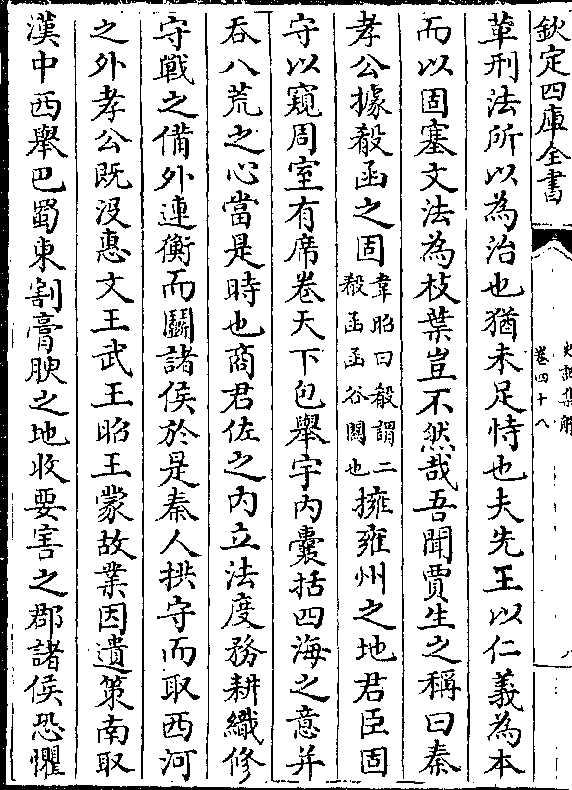 欽定四庫全書
史記集解
卷四十八
革刑法所以為治也猶未足恃也夫先王以仁義為本
而以固塞文法為枝葉豈不然哉吾聞賈生之稱曰秦
孝公據殽函之固韋昭曰殽謂二殽函函谷關也擁雍州之地君臣固
守以窺周室有席卷天下包舉宇内囊括四海之意并
吞八荒之心當是時也商君佐之内立法度務耕織修
守戰之備外連衡而鬭諸侯於是秦人拱守而取西河
之外孝公既没惠文王武王昭王蒙故業因遺策南取
漢中西舉巴蜀東割膏腴之地收要害之郡諸侯恐懼